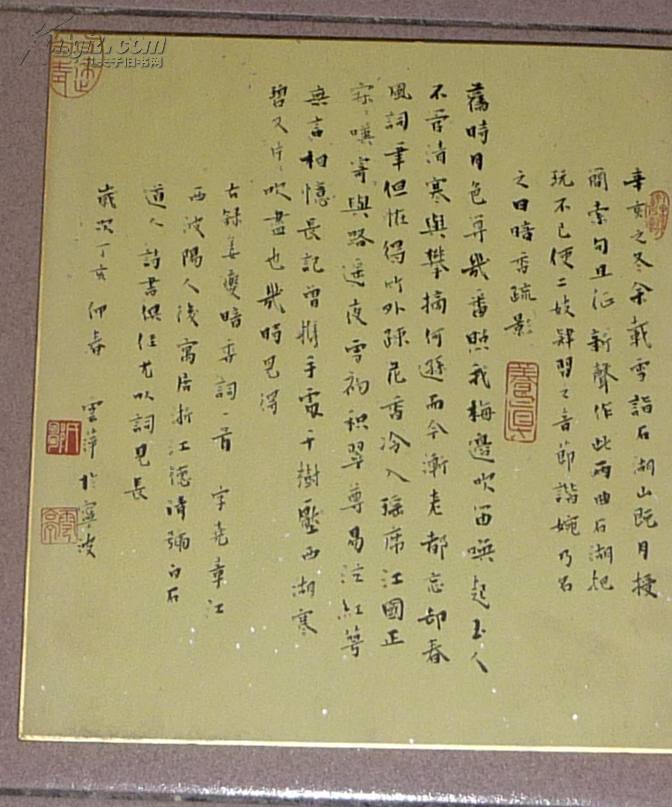 辛亥之冬余載雪詣石湖止既月授
簡索句且征新聲作此兩曲石湖把
玩不已使二妓肄習之音節諧婉乃名
之曰暗香疏影
舊時月色算幾番照我梅邊吹笛喚起玉人
不管清寒與攀摘何遜而今漸老都忘卻春
風詞筆但恠得竹外疎花香冷入瑤席江國正
寂〻嘆寄與路遙夜雪初積翠尊易泣紅萼
無言相憶長記曾攜手處千樹壓西湖寒
碧又片〻吹盡也幾時見得
右錄姜夔暗香詞一首 字堯章江
西波陽人後寓居浙江德清號白石
道人詩書俱佳尤以詞見長
歲次丁亥仲春 雲萍於寧波
養真
孔夫子旧书网